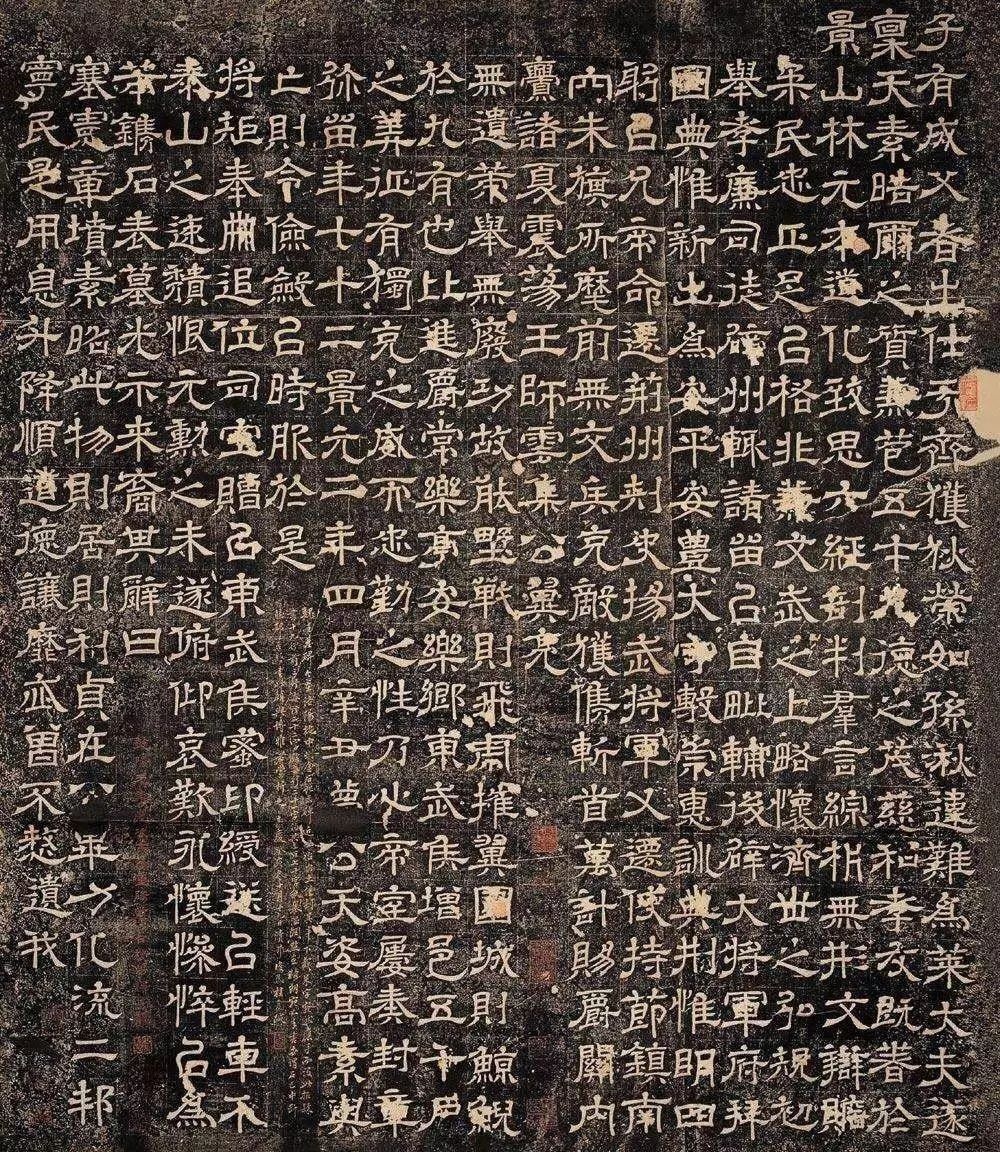 子有成父者出仕于齊獲狄榮如孫湫違難為萊大夫遂
稟天素皓爾之質兼苞五才九德之茂慈和孝友既著於
景山林元本道化致思六經剖判羣言綜析無形文辯贍
民忠正足以格非兼文武之上略懷濟世之弘規初
舉孝廉司徒辟州輒請留以自毗輔後辟大將軍府拜
國典惟新出為安平安豐太守敷崇惠訓典刑惟明四
躬以允帝命遷荊州刺史揚武將軍又遷使持節鎮南
內朱旗所麾前無交兵克敵獲儁斬首萬計賜爵關內
釁諸夏震蕩王師雲集公翼亮
無遺策舉無廢功故能野戰則飛虜摧翼圍城則鯨鯢
於九有也比進爵常樂亭安樂鄉東武侯增邑五千戶
之美征有獨克之威而忠勤之性乃心帝室屢奏封章
弥留年七十二景元二年四月辛丑薨公天姿高素與
亡則令儉斂以時服於是
將矩奉冊追位司空贈以東武侯蜜印綬送以輕車介
泰山之速穨恨元勳之未遂俯仰哀歎永懷慘悴以為
鐫石表墓光示來裔其辭曰
塞憲章墳素昭此物則居則利貞在公化流二邦
寧民是用息升降順道德讓靡忒曷不憖遺我